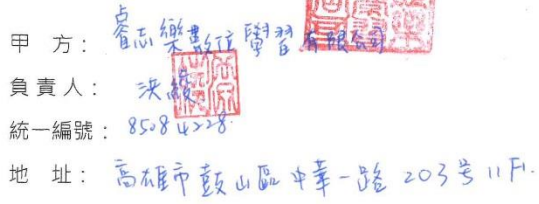 甲 方： 睿志樂數位學習有限公司
負責人： 洪
統一編號： 85084228
地 址： 高雄市鼓山區中華一路203号11F1.